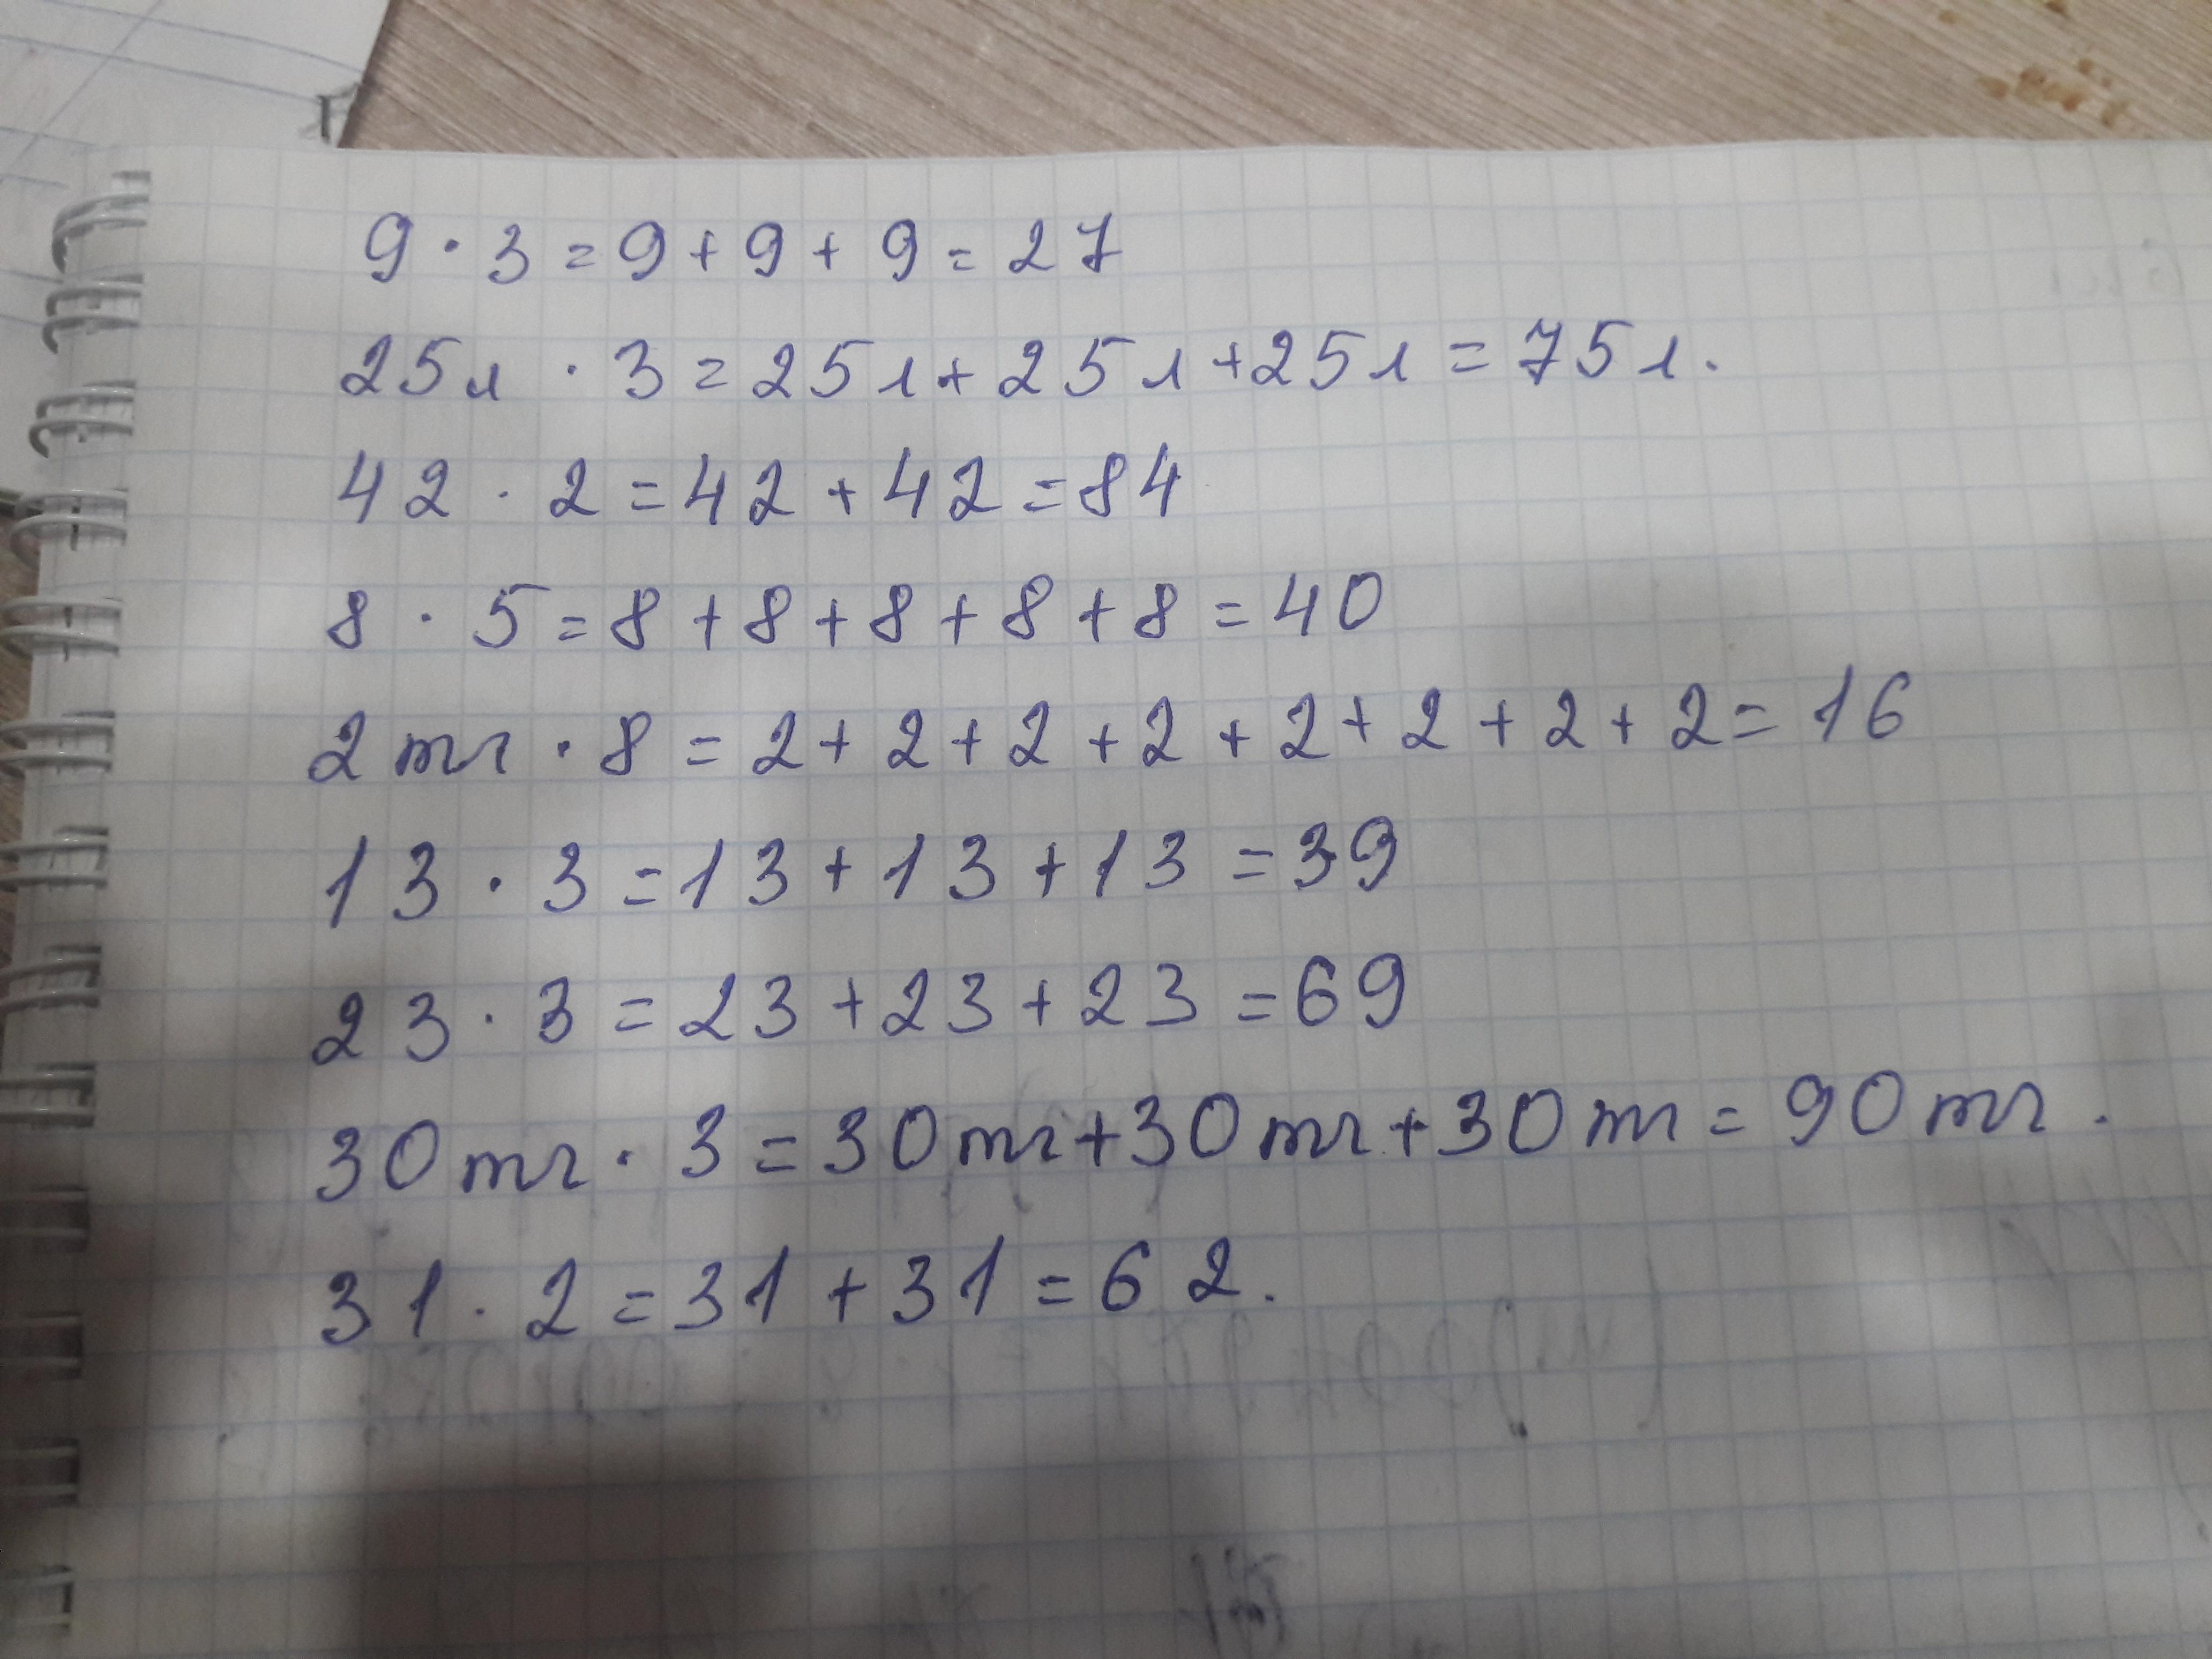 9 · 3 = 9 + 9 + 9 = 27
25л · 3 = 25л + 25л + 25л = 75л.
42 · 2 = 42 + 42 = 84
8 · 5 = 8 + 8 + 8 + 8 + 8 = 40
2 тг · 8 = 2 + 2 + 2 + 2 + 2 + 2 + 2 + 2 = 16
13 · 3 = 13 + 13 + 13 = 39
23 · 3 = 23 + 23 + 23 = 69
30 тг · 3 = 30 тг + 30 тг + 30 тг = 90 тг.
31 · 2 = 31 + 31 = 62.